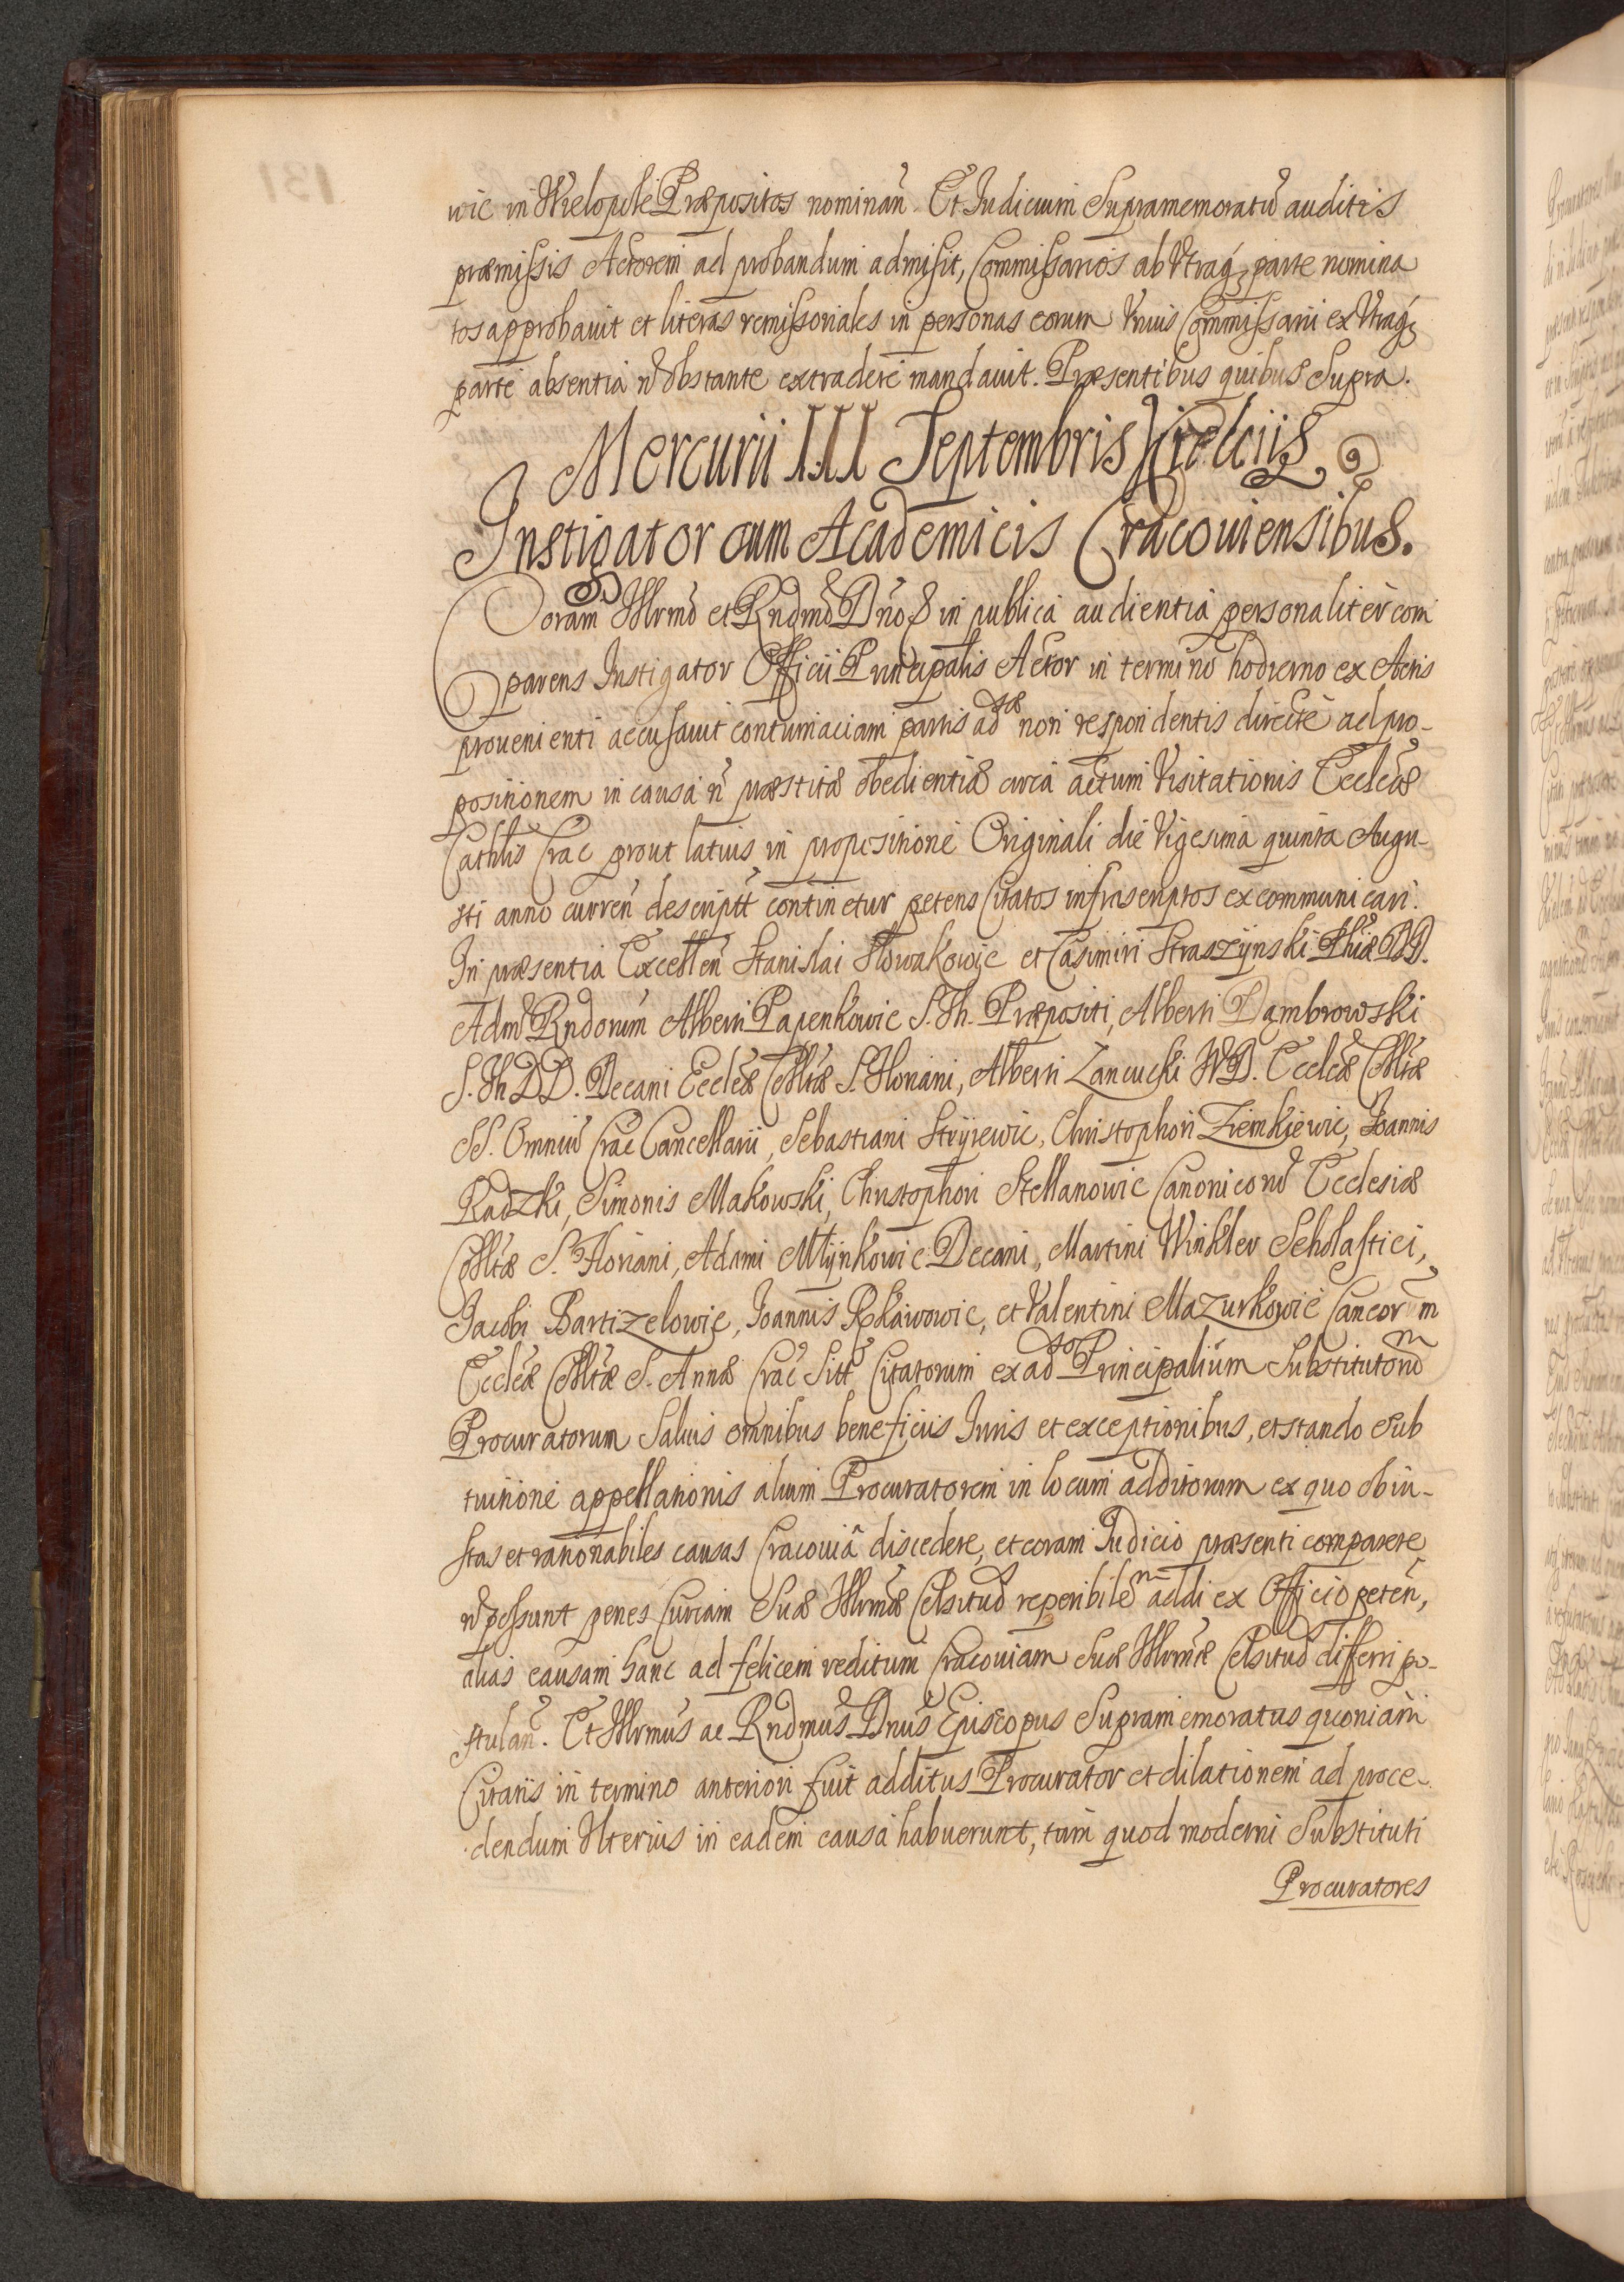 wic in Wielopole Præpositos nominan̄. Et Iudicium Supramemoratū auditis
præmissis Actorem ad probandum admisit, Commissarios ab Vtraq; parte nomina
tos approbauit et literas remissoriales in personas eorum Vnius Commissarii ex Vtraq;
parte absentia n̄ obstante extradere mandauit. Præsentibus quibus Supra.
Mercurii III Septembris Kielciis
Instigator cum Academicis Cracouiensibus.
Coram Illrmō et Rndmō Dn̄o in publica audientia personaliter com
parens Instigator Officii Principalis Actor in termino hodierno ex Actis
prouenienti accusauit contumaciam partis adsæ non respondentis directe ad pro-
positionem in causa n̄ præstitæ obedientiæ circa actum Visitationis Eccleæ
Cathlis Crac prout latius in propositione Originali die Vigesima quinta Augu-
sti anno curren̄ descriptt continetur petens Citatos infrascriptos excommunicari.
In præsentia Excellen̄ Stanislai Słowakowic et Casimiri Straszynski Phiæ DD.
Adm̄ Rndorum Alberti Papenkowic S. Th. Præpositi, Alberti Dąmbrowski
S. Th DD. Decani Eccleæ Colltæ S. Floriani, Alberti Zancucki VD. Eccleæ Colltæ
SS. Omniū Crac Cancellarii, Sebastiani Stryiewic, Christophori Ziemkiewic, Joannis
Radzki, Simonis Makowski, Christophori Stellanowic Canonicorū Ecclesiæ
Colltæ S. Floriani, Adami Młynkowic Decani, Martini Winkler Scholastici,
Jacobi Bartizelowic, Joannis Rkawowic, et Valentini Mazurkowic Cancorum
Eccleæ Colltæ S. Annæ Crac Sitt Citatorum ex adso Principalium Substitutorū
Procuratorum Saluis omnibus beneficiis Iuris et exceptionibus, et stando Sub
tuitione appellationis alium Procuratorem in locum additorum ex quo ob iu-
stas et rationabiles causas Cracouia discedere, et coram Iudicio præsenti comparere
n̄ possunt penes Curiam Suæ Illrmæ Celsitud reperibilem addi ex Officio peten̄,
alias causam hanc ad felicem reditum Cracouiam Suæ Illrmæ Celsitud differri po-
stulan̄. Et Illrmus ac Rndmus Dnus Episcopus Supramemoratus quoniam
Citatis in termino anteriori fuit additus Procurator et dilationem ad proce
dendum Vlterius in eadem causa habuerunt, tam quod moderni Substituti
Procuratores